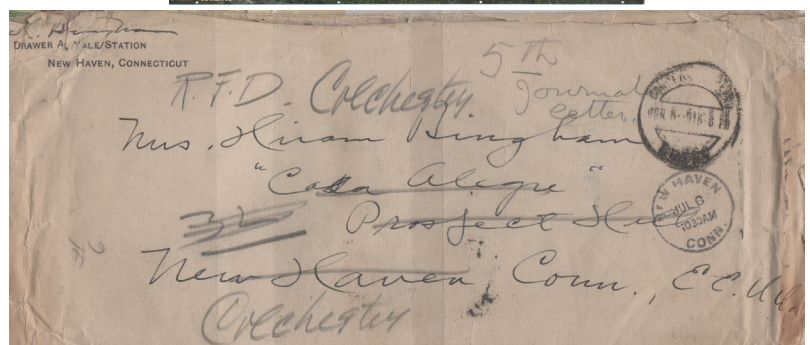 H. Bingham
DRAWER A, YALE STATION
NEW HAVEN, CONNECTICUT
5th
Journal
letter.
R.F.D. Colchester
Mrs. Hiram Bingham
"Casa Alegre"
32 Prospect Hill
New Haven Conn., E.E.U.U.
Colchester
NEW HAVEN
CONN.